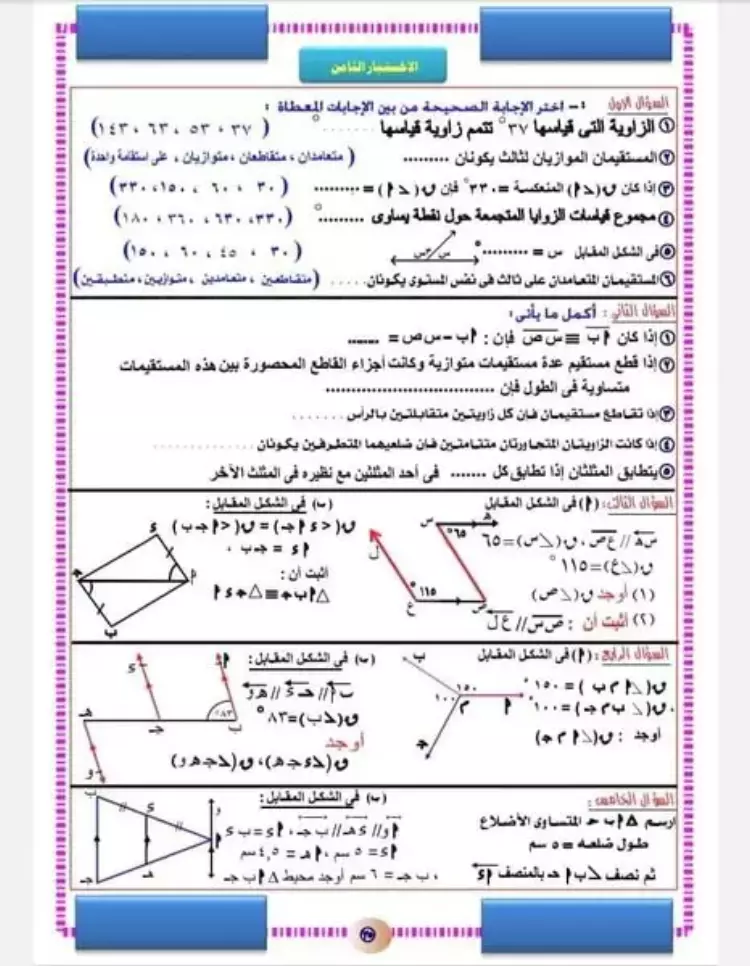 الاختبار الثامن
السؤال الأول :- اختر الإجابة الصحيحة من بين الإجابات المعطاة :
① الزاوية التى قياسها ٣٧° تتمم زاوية قياسها ........° (٣٧ ، ٥٣ ، ٦٣ ، ١٤٣)
② المستقيمان الموازيان لثالث يكونان ......... (متعامدان ، متقاطعان ، متوازيان ، على استقامة واحدة)
③ إذا كان ق(∠أ) المنعكسة = ٣٣٠° فإن ق(∠أ) = .........° (٣٠ ، ٦٠ ، ١٥٠ ، ٣٣٠)
④ مجموع قياسات الزوايا المتجمعة حول نقطة يساوى .........° (٣٣٠ ، ٦٣٠ ، ٣٦٠ ، ١٨٠)
⑤ فى الشكل المقابل س = .........° (٣٠ ، ٤٥ ، ٦٠ ، ١٥٠)
س ٣س
⑥ المستقيمان المتعامدان على ثالث فى نفس المستوى يكونان ..... (متقاطعين ، متعامدين ، متوازيين ، منطبقين)
السؤال الثانى : أكمل ما يأتى :
① إذا كان أب ≡ س ص فإن : أب – س ص = ........
② إذا قطع مستقيم عدة مستقيمات متوازية وكانت أجزاء القاطع المحصورة بين هذه المستقيمات
متساوية فى الطول فإن ................................
③ إذا تقاطع مستقيمان فإن كل زاويتين متقابلتين بالرأس .......
④ إذا كانت الزاويتان المتجاورتان متتامتين فإن ضلعيهما المتطرفين يكونان ..............
⑤ يتطابق المثلثان إذا تطابق كل ....... فى أحد المثلثين مع نظيره فى المثلث الآخر
السؤال الثالث : (أ) فى الشكل المقابل
س هـ // ع ص ، ق(∠س) = ٦٥
ق(∠ع) = ١١٥°
(١) أوجد ق(∠ص)
(٢) أثبت أن : ص س // ع ل
س هـ ٦٥° ل ١١٥° ع ص
(ب) فى الشكل المقابل :
ق(∠ء أ جـ) = ق(∠أ جـ ب)
أ ء = جـ ب ،
أثبت أن :
△ أ ب جـ ≡ △ جـ ء أ
ء أ جـ ب
السؤال الرابع : (أ) فى الشكل المقابل
ق(∠أ م ب) = ١٥٠°
، ق(∠ب م جـ) = ١٠٠°
أوجد : ق(∠أ م جـ)
ب ١٥٠ ١٠٠ م أ جـ
(ب) فى الشكل المقابل :
ب أ // جـ ء // هـ و
ق(∠ب) = ٨٣°
أوجد
ق(∠ء جـ هـ) ، ق(∠جـ هـ و)
أ ء ٨٣° هـ جـ ب و
السؤال الخامس :
ارسم △ أ ب جـ المتساوى الأضلاع
طول ضلعه = ٥ سم
ثم نصف ∠ ب أ جـ بالمنصف أ ء
(ب) فى الشكل المقابل :
أ و // ء هـ // ب جـ ، أ ء = ب ء
أ ء = ٥ سم ، أ هـ = ٤,٥ سم
، ب جـ = ٦ سم أوجد محيط △ أ ب جـ
ب ء و أ هـ جـ